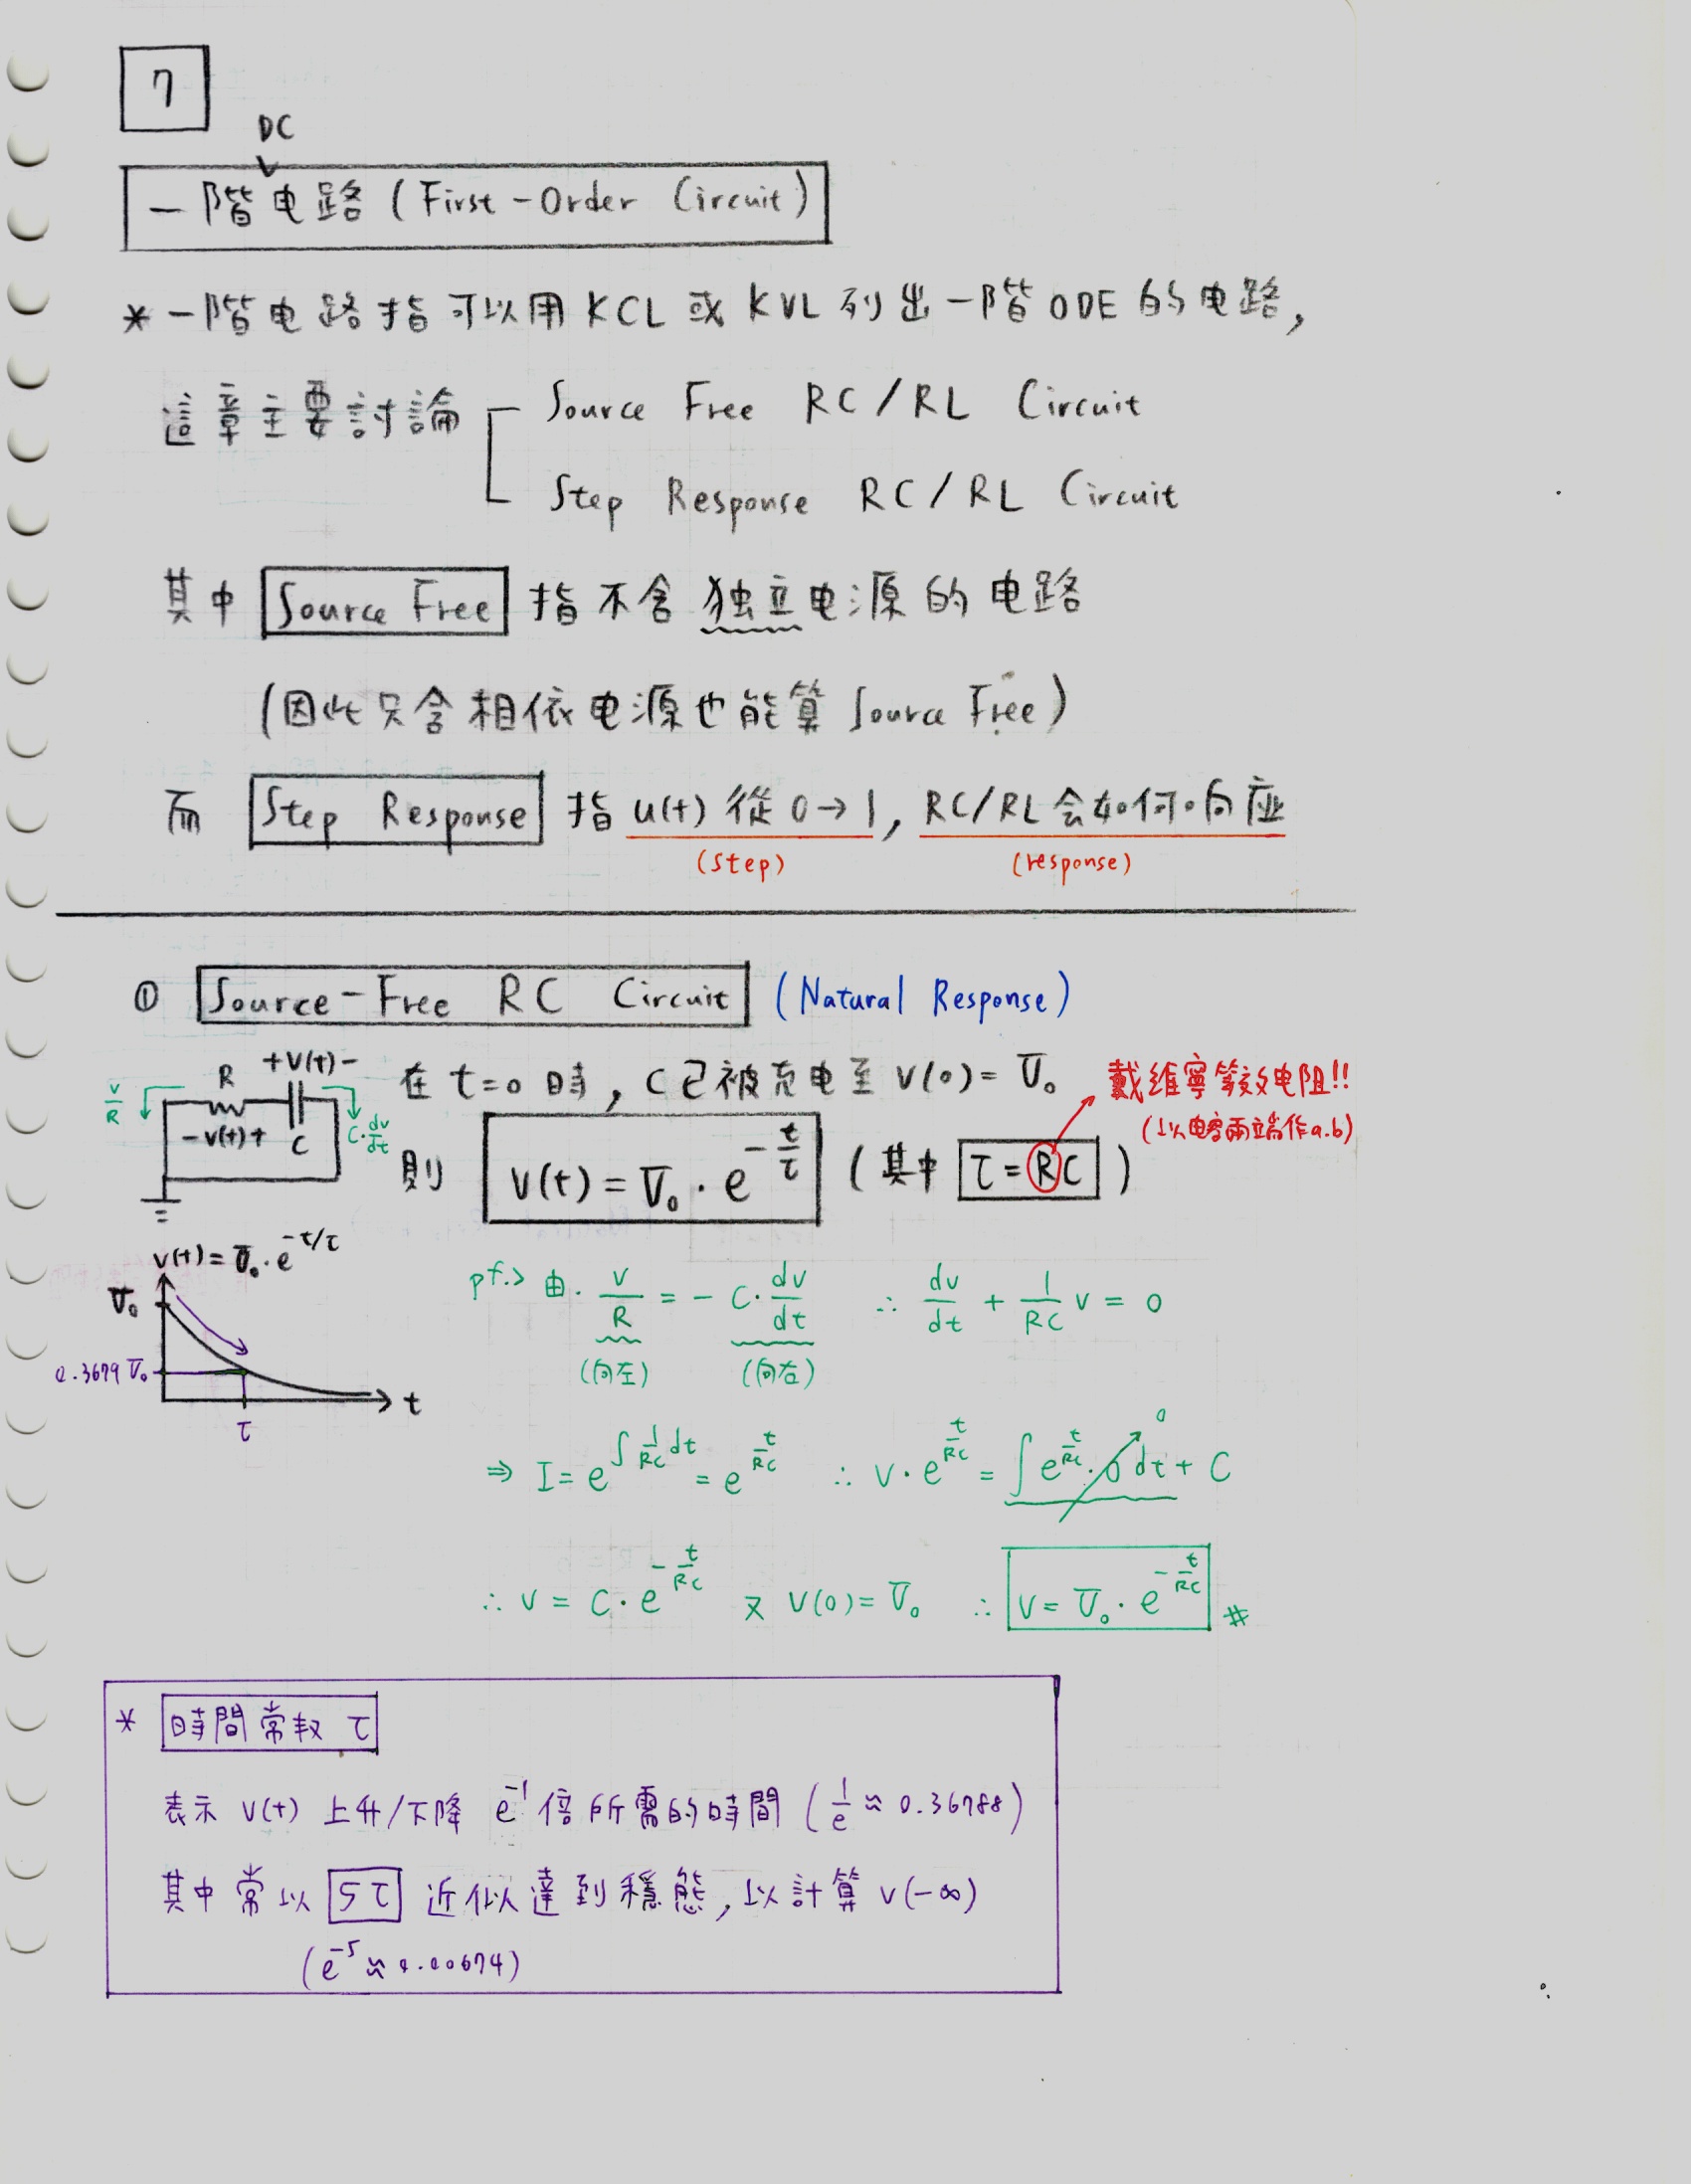 7
DC
一階电路 (First-Order Circuit)
* 一階电路指可以用 KCL 或 KVL 列出一階 ODE 的电路,
這章主要討論
Source Free RC/RL Circuit
Step Response RC/RL Circuit
其中 Source Free 指不含独立电源的电路
(因此只含相依电源也能算 Source Free)
而 Step Response 指 u(t) 從 0→1, RC/RL 会如何响应
(step) (response)
① Source-Free RC Circuit (Natural Response)
R +V(t)-
v/R
-v(t)+ C
C·dv/dt
在 t=0 時, C已被充电至 V(0)=V₀
戴維寧等效电阻!!
(以电容兩端作a.b)
則 V(t)=V₀·e^(-t/τ) (其中 τ=RC)
v(t)=V₀·e^(-t/τ)
V₀
0.3679V₀
t
τ
pf.> 由. v/R = - C·dv/dt ∴ dv/dt + 1/RC v = 0
(向左) (向右)
⇒ I= e^(∫1/RC dt) = e^(t/RC) ∴ V·e^(t/RC) = ∫e^(t/RC)·0dt + C
0
∴ V = C·e^(-t/RC) 又 V(0)=V₀ ∴ V=V₀·e^(-t/RC) #
* 時間常数 τ
表示 V(t) 上升/下降 e⁻¹ 倍所需的時間 (1/e ≈ 0.36788)
其中常以 5τ 近似達到穩態, 以計算 v(-∞)
(e⁻⁵ ≈ 0.00674)